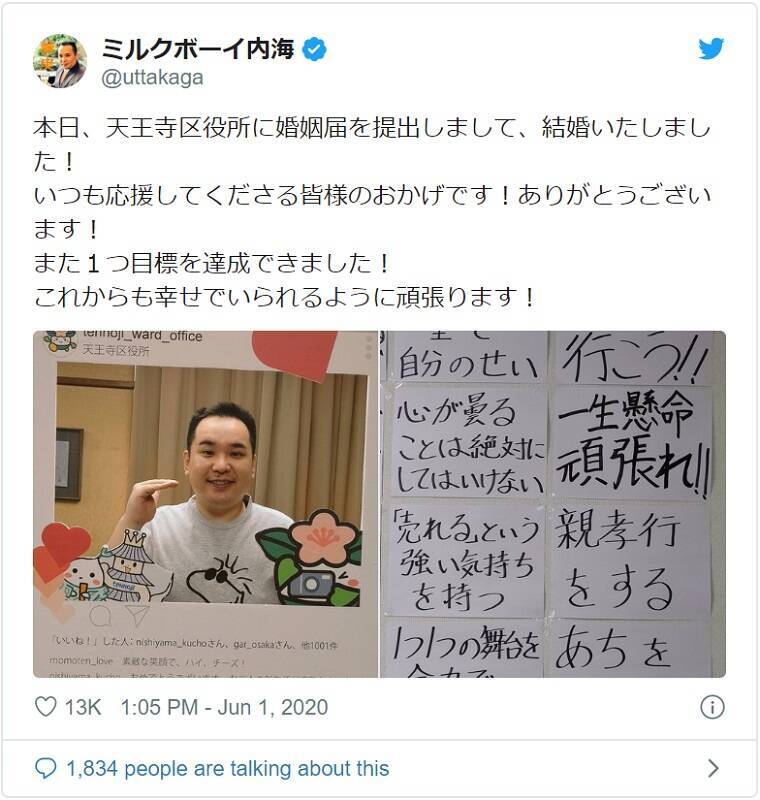 ミルクボーイ内海
@uttakaga
本日、天王寺区役所に婚姻届を提出しまして、結婚いたしまし
た!
いつも応援してくださる皆様のおかげです!ありがとうござい
ます!
また1つ目標を達成できました!
これからも幸せでいられるように頑張ります!
tennoji_ward_office
天王寺区役所
TENNOJI
「いいね!」した人:nishiyama_kuchoさん、gar_osakaさん、他1001件
momoten_love 素敵な笑顔で、ハイ、チーズ!
nishiyama_kucho
自分のせい
行こう!!
心が曇る
ことは絶対に
してはいけない
一生懸命
頑張れ!!
「売れる」という
強い気持ち
を持つ
親孝行
をする
1つ1つの舞台を
あちを
13K 1:05 PM - Jun 1, 2020
1,834 people are talking about this